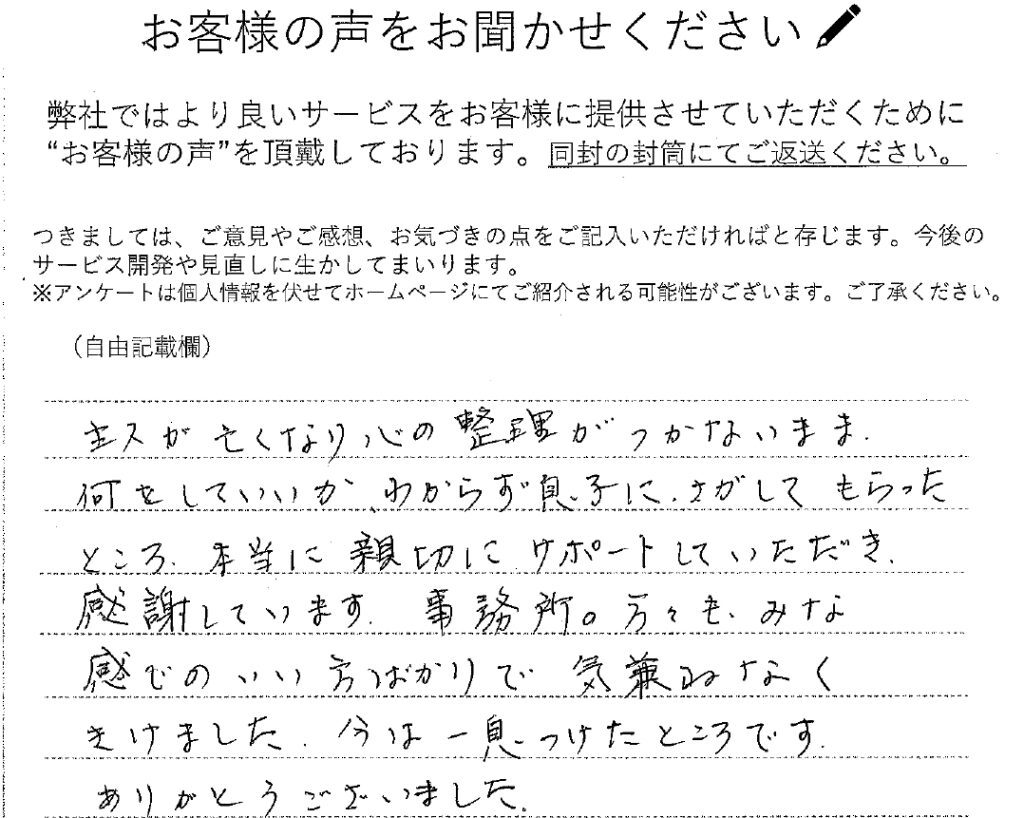 お客様の声をお聞かせください
弊社ではより良いサービスをお客様に提供させていただくために
“お客様の声”を頂戴しております。同封の封筒にてご返送ください。
つきましては、ご意見やご感想、お気づきの点をご記入いただければと存じます。今後の
サービス開発や見直しに生かしてまいります。
※アンケートは個人情報を伏せてホームページにてご紹介される可能性がございます。ご了承ください。
（自由記載欄）
主人が亡くなり心の整理がつかないまま、
何をしていいか、わからず息子に、さがしてもらった
ところ、本当に親切にサポートしていただき、
感謝しています。事務所の方々も、みな
感じのいい方ばかりで気兼ねなく
きけました。今は一息つけたところです。
ありがとうございました。